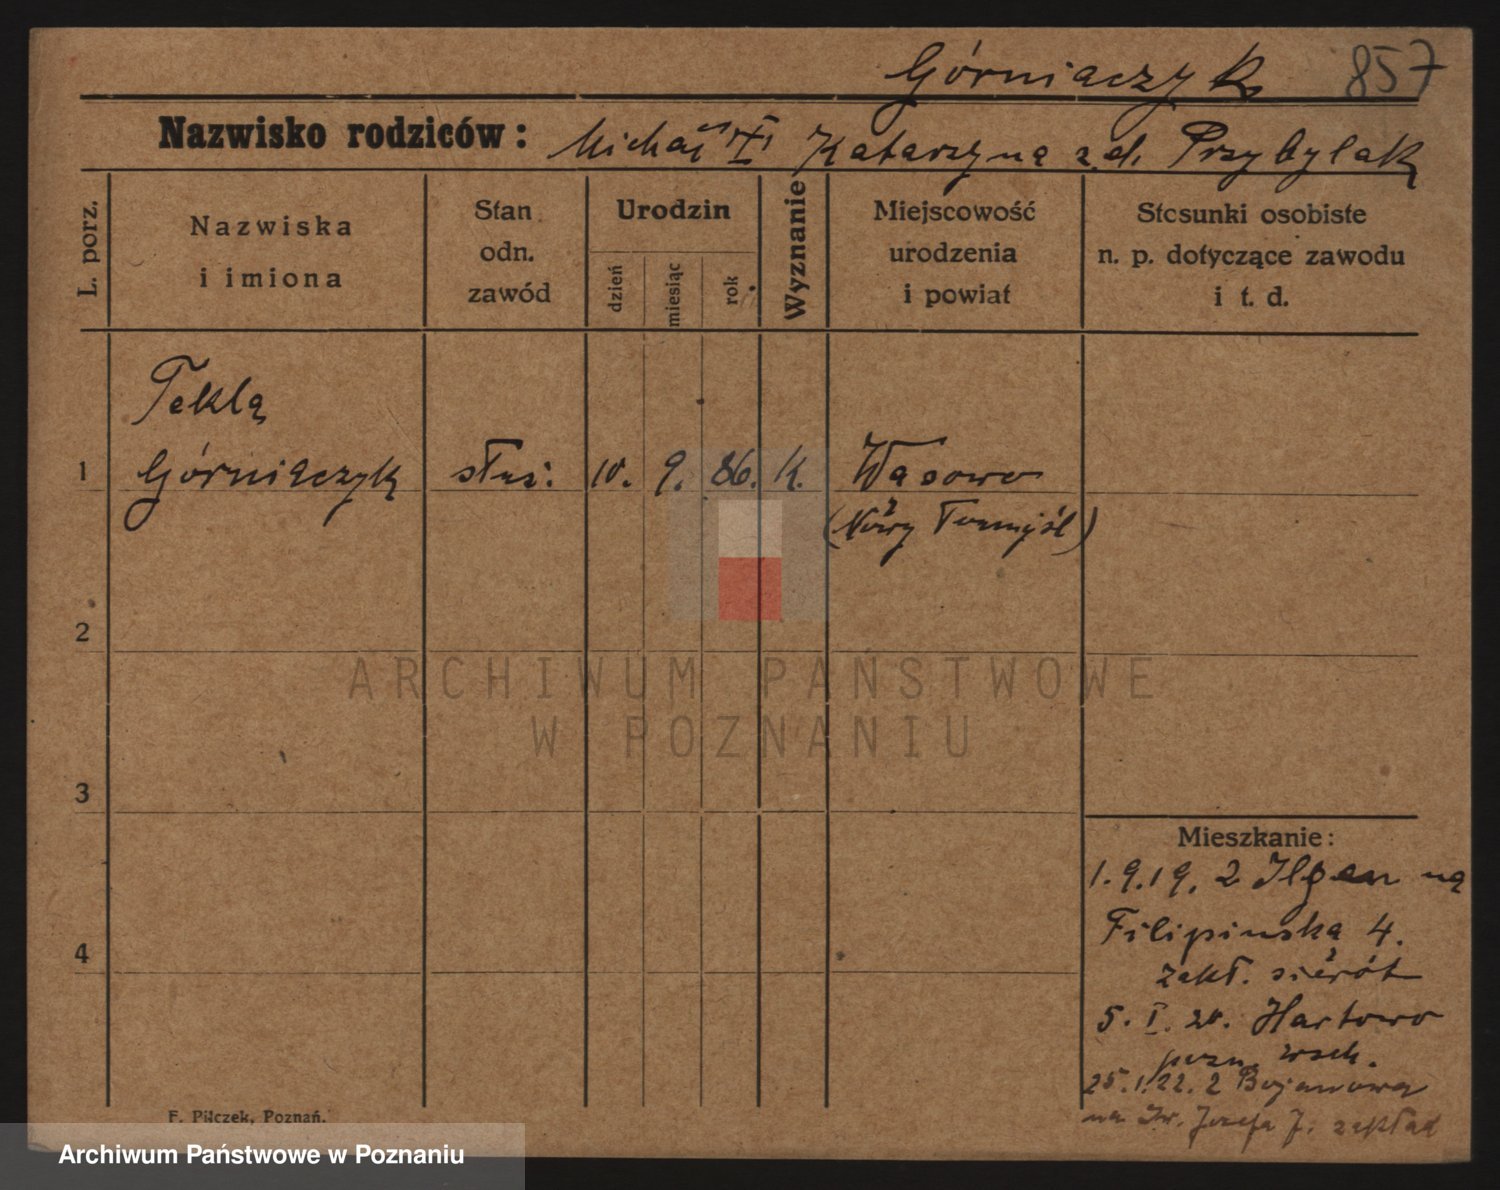 Górniaczyk 857
Nazwisko rodziców: Michał Katarzyna z d. Przybylak
L. porz.
Nazwiska
i imiona
Stan
odn.
zawód
Urodzin
dzień
miesiąc
rok
Wyznanie
Miejscowość
urodzenia
i powiat
Stosunki osobiste
n. p. dotyczące zawodu
i t. d.
Tekla
1 Górniaczyk służ. 10. 9. 86. K. Wąsowo
(Nowy Tomyśl)
2
3
4
Mieszkanie:
1.9.19. z Ilgen na
Filipińska 4.
zakł. sierót
5. I. 20. Hartowo
pozn. wsch.
25.1.22. z Bojanowa
na Św. Józefa 7. zakład
F. Pilczek, Poznań.
ARCHIWUM PAŃSTWOWE
W POZNANIU
Archiwum Państwowe w Poznaniu